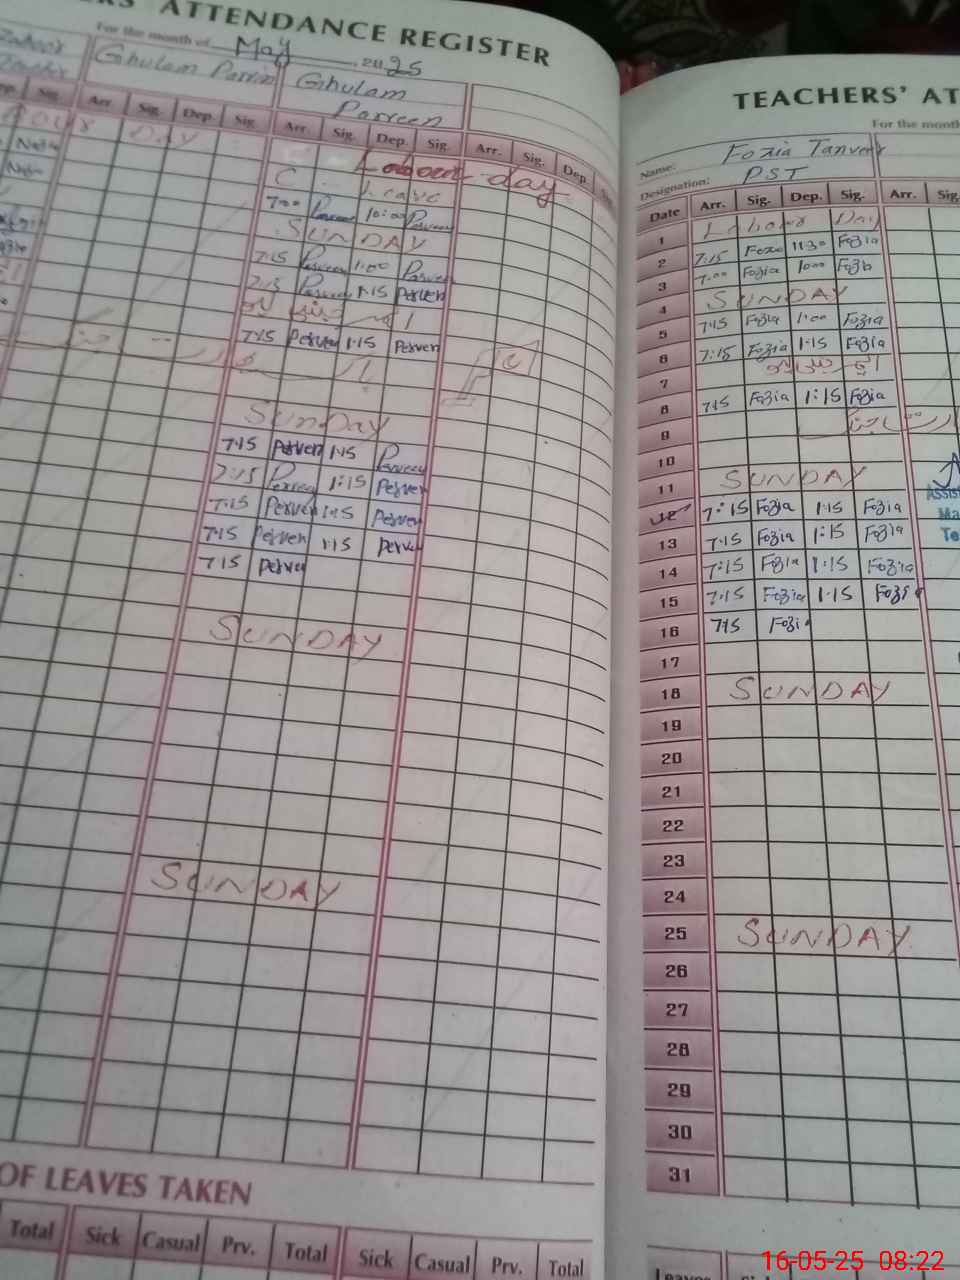 ATTENDANCE REGISTER
For the month of May, 2025
Ghulam Parvin
Ghulam Parveen
Arr. Sig. Dep. Sig. Arr. Sig. Dep. Sig. Arr. Sig. Dep.
Day
Labour day
C. Leave
7:00 Parveen 10:00 Parveen
SUNDAY
7:15 Parveen 1:00 Parveen
7:15 Parveen 1:15 Perven
7:15 Perven 1:15 Perven
SUNDAY
7:15 Perven 1:15 Parveen
7:15 Perveen 1:15 Perven
7:15 Perven 1:15 Perven
7:15 Perven 1:15 Perven
7:15 Perven
SUNDAY
SUNDAY
OF LEAVES TAKEN
Total Sick Casual Prv. Total Sick Casual Prv. Total
TEACHERS' AT
For the month
Name: Fozia Tanveer
Designation: PST
Date Arr. Sig. Dep. Sig. Arr. Sig.
1 Labour Day
2 7:15 Fozia 11:30 Fozia
3 7:00 Fozia 10:00 Fozia
4 SUNDAY
5 7:15 Fozia 1:00 Fozia
6 7:15 Fozia 1:15 Fozia
7
8 7:15 Fozia 1:15 Fozia
9
10
11 SUNDAY
12 7:15 Fozia 1:15 Fozia
13 7:15 Fozia 1:15 Fozia
14 7:15 Fozia 1:15 Fozia
15 7:15 Fozia 1:15 Fozia
16 7:15 Fozia
17
18 SUNDAY
19
20
21
22
23
24
25 SUNDAY
26
27
28
29
30
31
Assis
Ma
Te
Leaves
16-05-25 08:22